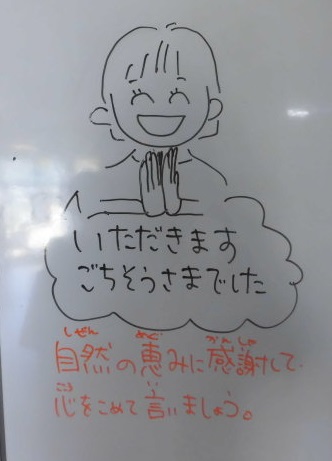 いただきます
ごちそうさまでした
しぜん めぐ かんしゃ
自然の恵みに感謝して
こころ い
心をこめて言いましょう。